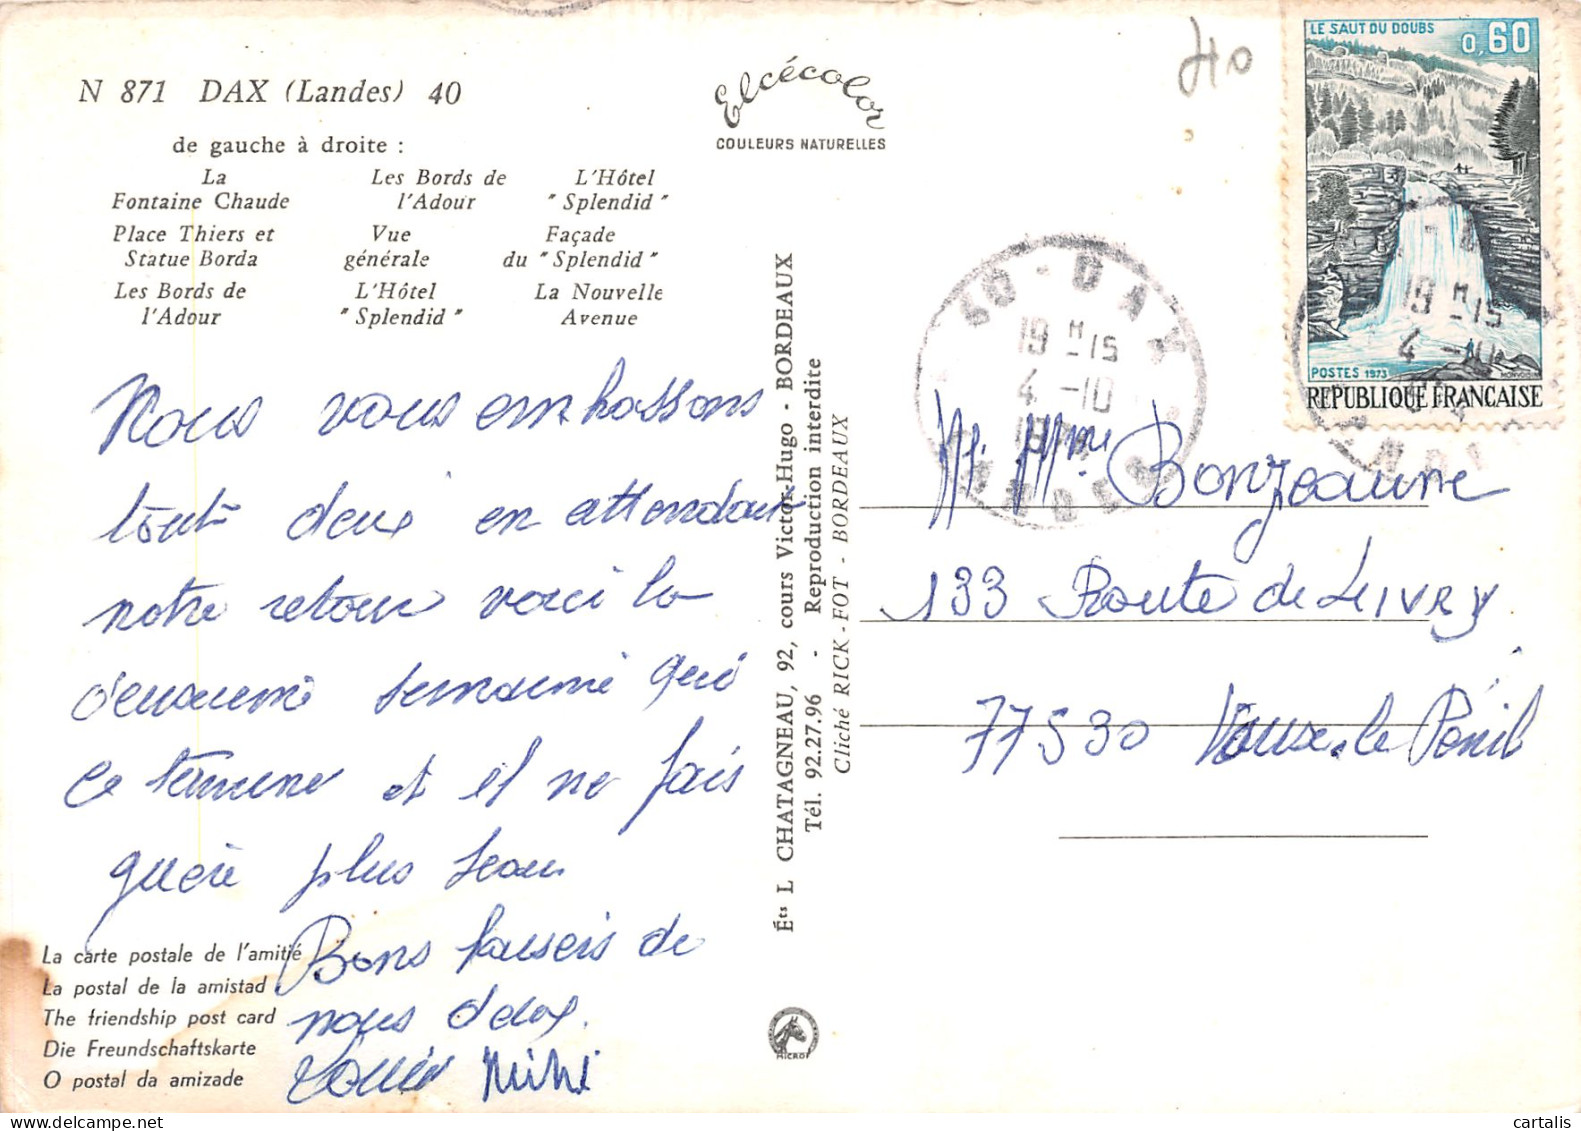 N 871 DAX (Landes) 40
de gauche à droite :
La Fontaine Chaude
Les Bords de l'Adour
L'Hôtel "Splendid"
Place Thiers et Statue Borda
Vue générale
Façade du "Splendid"
Les Bords de l'Adour
L'Hôtel "Splendid"
La Nouvelle Avenue
Elcécolor
COULEURS NATURELLES
40
LE SAUT DU DOUBS
0,60
POSTES 1973
REPUBLIQUE FRANCAISE
40 - DAX
19 H -15
4 -10
LANDES
19 H -15
4 -10
Nous vous embrassons
tout deux en attendant
notre retour voici la
deuxieme semaine qui
ce termine et il ne fais
guere plus beau
Bons baisers de
nous deux.
Mimi
M. Mme Bonjeanne
133 Route de LIVRY
77530 Vaux-le Pénil
Éts L CHATAGNEAU, 92, cours Victor-Hugo - BORDEAUX
Tél. 92.27.96 - Reproduction interdite
Cliché RICK-FOT - BORDEAUX
La carte postale de l'amitié
La postal de la amistad
The friendship post card
Die Freundschaftskarte
O postal da amizade
cartalis